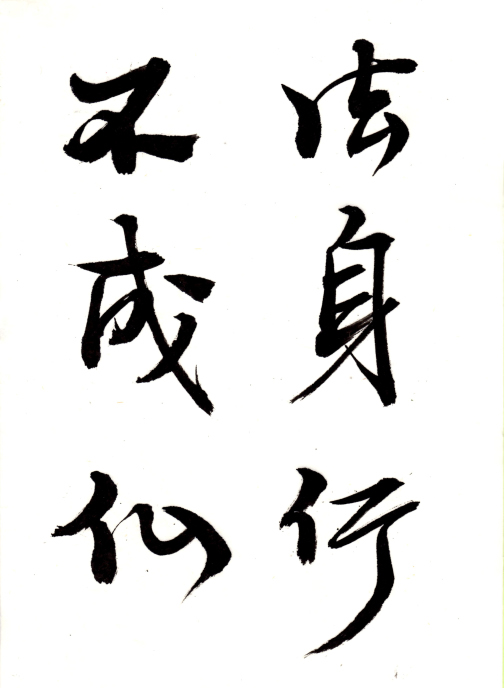 法身行
不成仙